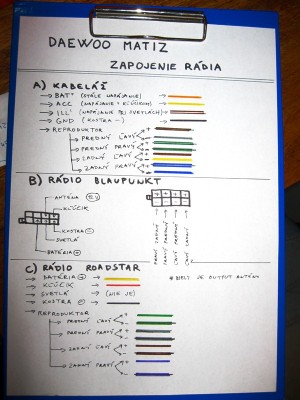 DAEWOO MATIZ
ZAPOJENIE RÁDIA
A) KABELÁŽ
→ BAT+ (STÁLE NAPÁJANIE) →
→ ACC (NAPÁJANIE S KĽÚČIKOM) →
→ ILL+ (NAPÁJANIE PRI SVETLÁCH) →
→ GND (KOSTRA -) →
→ REPRODUKTOR
→ PREDNÝ ĽAVÝ + -
→ PREDNÝ PRAVÝ + -
→ ZADNÝ ĽAVÝ + -
→ ZADNÝ PRAVÝ + -
B) RÁDIO BLAUPUNKT
ANTÉNA
KĽÚČIK
KOSTRA -
SVETLÁ
BATÉRIA +
PRAVÝ ZADNÝ
PRAVÝ PREDNÝ
ĽAVÝ PREDNÝ
ĽAVÝ ZADNÝ
C) RÁDIO ROADSTAR
→ BATÉRIA + →
→ KĽÚČIK →
→ SVETLÁ → (NIE JE)
→ KOSTRA - →
* BIELY JE OUTPUT ANTÉNA
→ REPRODUKTOR
→ PREDNÝ ĽAVÝ + -
→ PREDNÝ PRAVÝ + -
→ ZADNÝ ĽAVÝ + -
→ ZADNÝ PRAVÝ + -